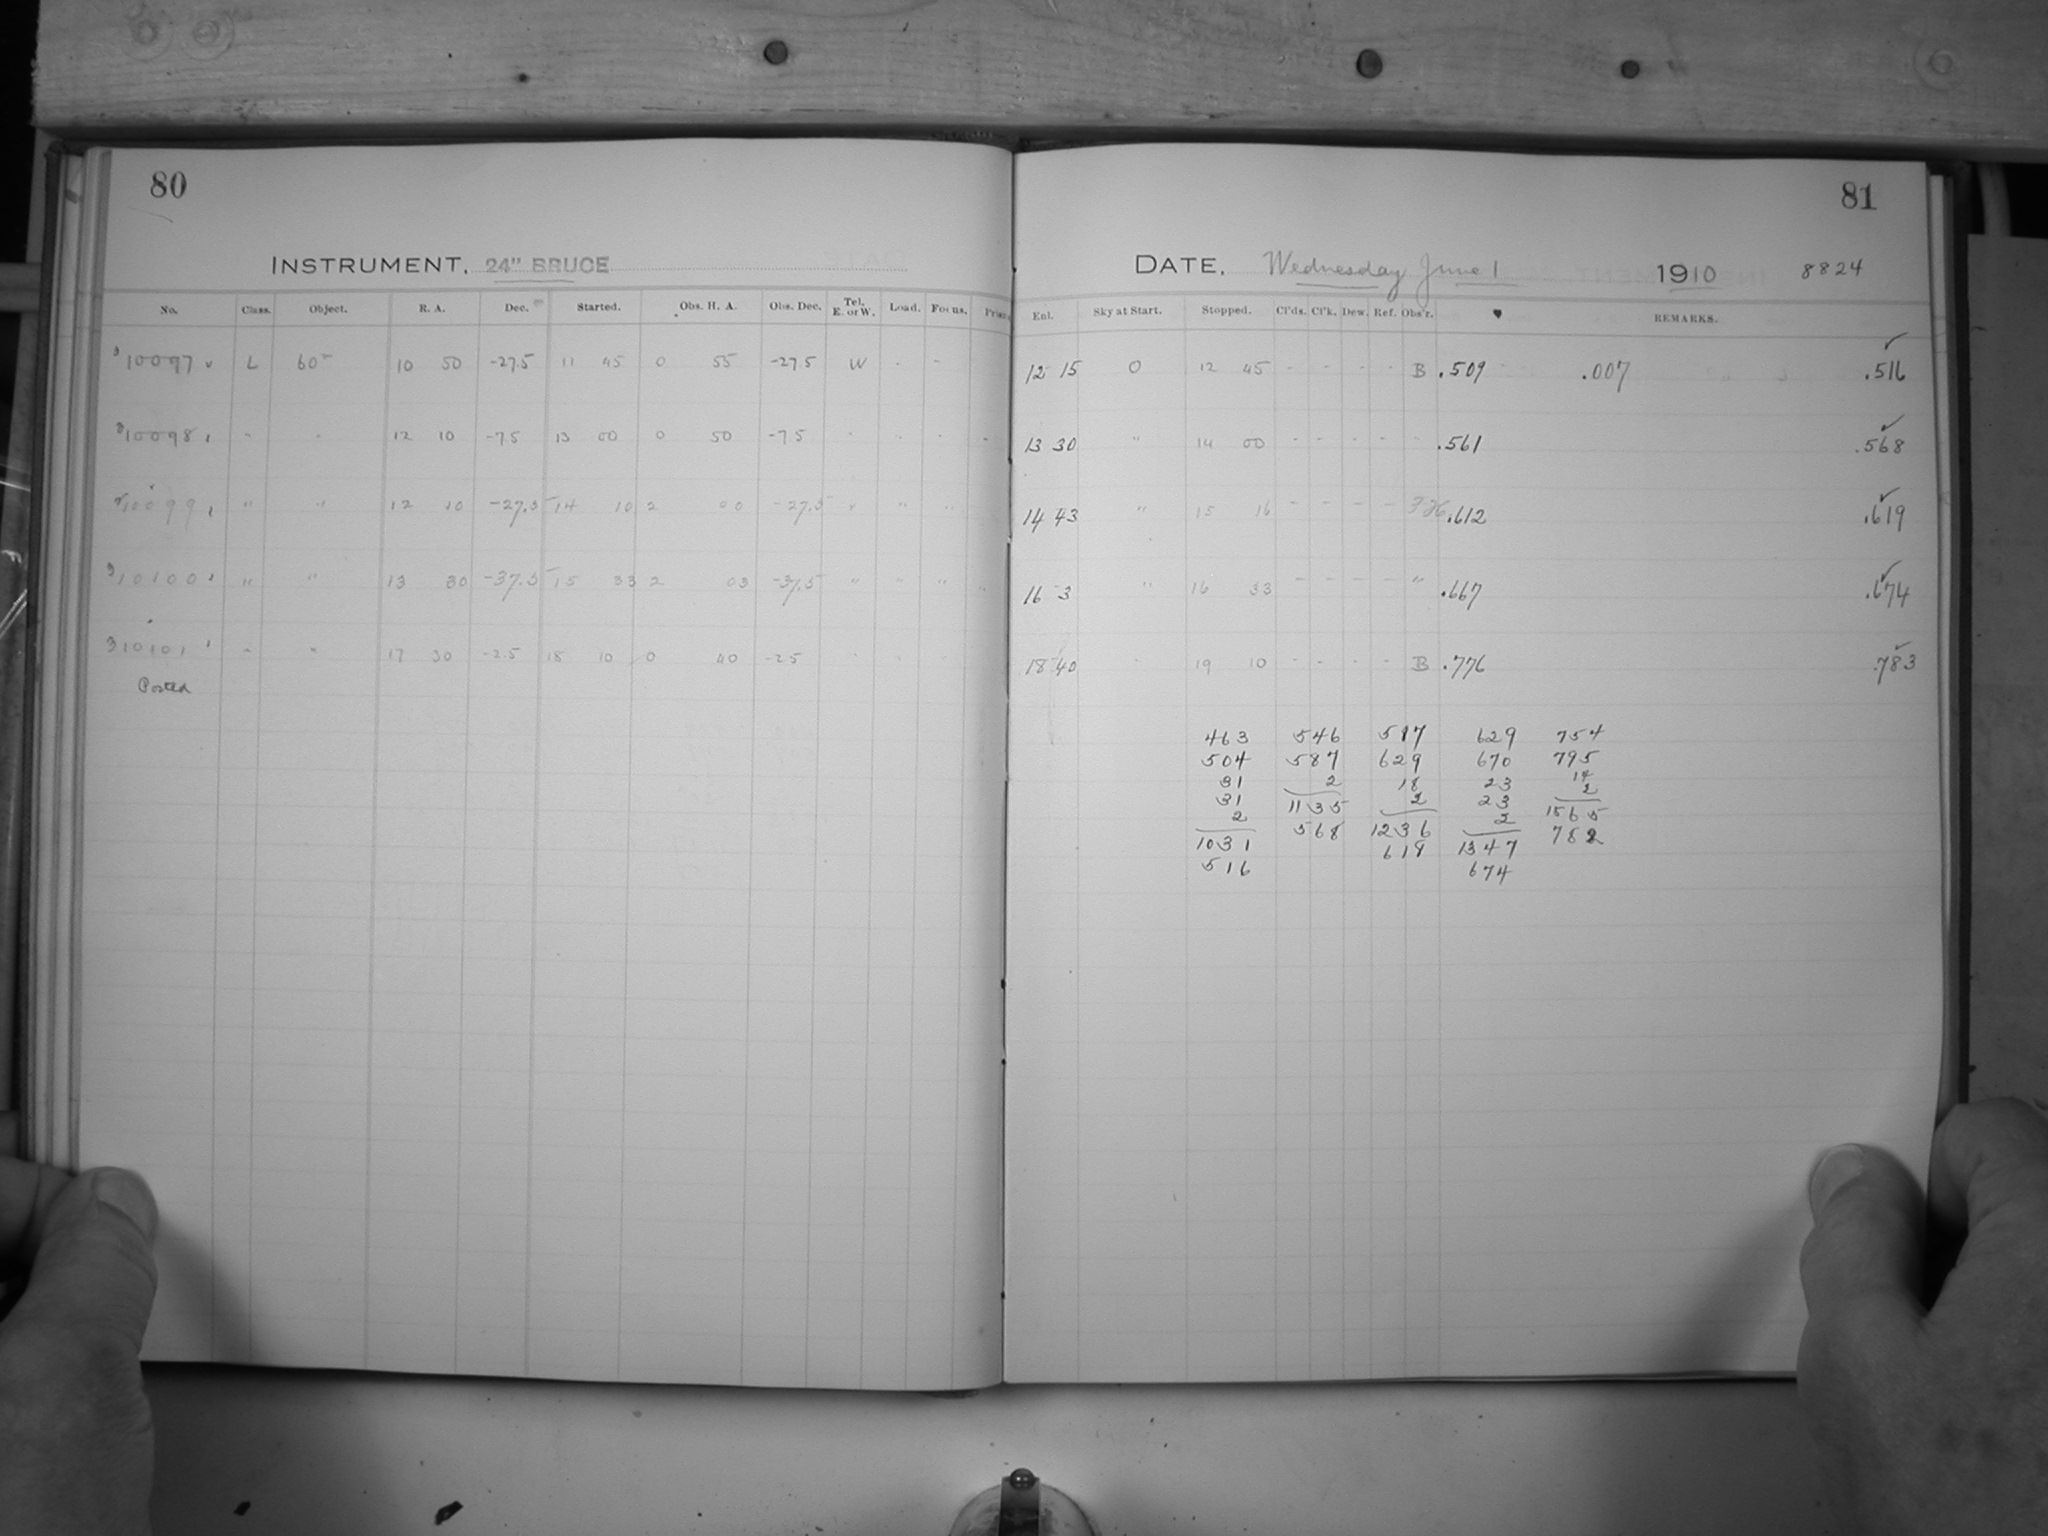 80
INSTRUMENT. 24" BRUCE
No. Class. Object. R. A. Dec. Started. Obs. H. A. Obs. Dec. Tel. E. or W. Load. Focus.
10097 L 60m 10 50 -27.5 11 45 0 55 -27.5 W - -
10098 " " 12 10 -7.5 13 00 0 50 -7.5 " " " "
10099 " " 12 10 -27.5 14 10 2 00 -27.5 " " "
10100 " " 13 30 -37.5 15 33 2 03 -37.5 " " " "
10101 " " 17 30 -2.5 18 10 0 40 -2.5 " "
Posted
81
DATE. Wednesday June 1 1910 8824
Enl. Sky at Start. Stopped. Cl'ds. Cl'k. Dew. Ref. Obs'r. REMARKS.
12 15 0 12 45 - - - - B .509 .007 .516
13 30 " 14 00 - - - - " .561 .568
14 43 " 15 16 - - - - .612 .619
16 3 " 16 33 - - - - " .667 .674
18 40 " 19 10 - - - - B .776 .783
463 546 587 629 754
504 587 629 670 795
31 2 18 23 14
31 1135 2 23 2
2 568 1236 2 1565
1031 618 1347 782
516 674